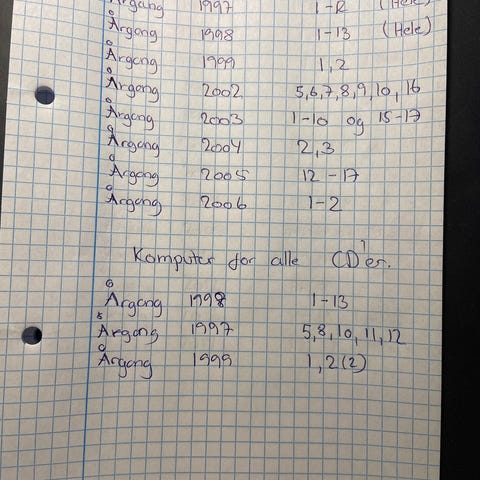 Årgang 1997 1-12 (Hele)
Årgang 1998 1-13 (Hele)
Årgang 1999 1,2
Årgang 2002 5,6,7,8,9,10,16
Årgang 2003 1-10 og 15-17
Årgang 2004 2,3
Årgang 2005 12-17
Årgang 2006 1-2
Komputer for alle CD'er.
Årgang 1998 1-13
Årgang 1997 5,8,10,11,12
Årgang 1999 1,2(2)